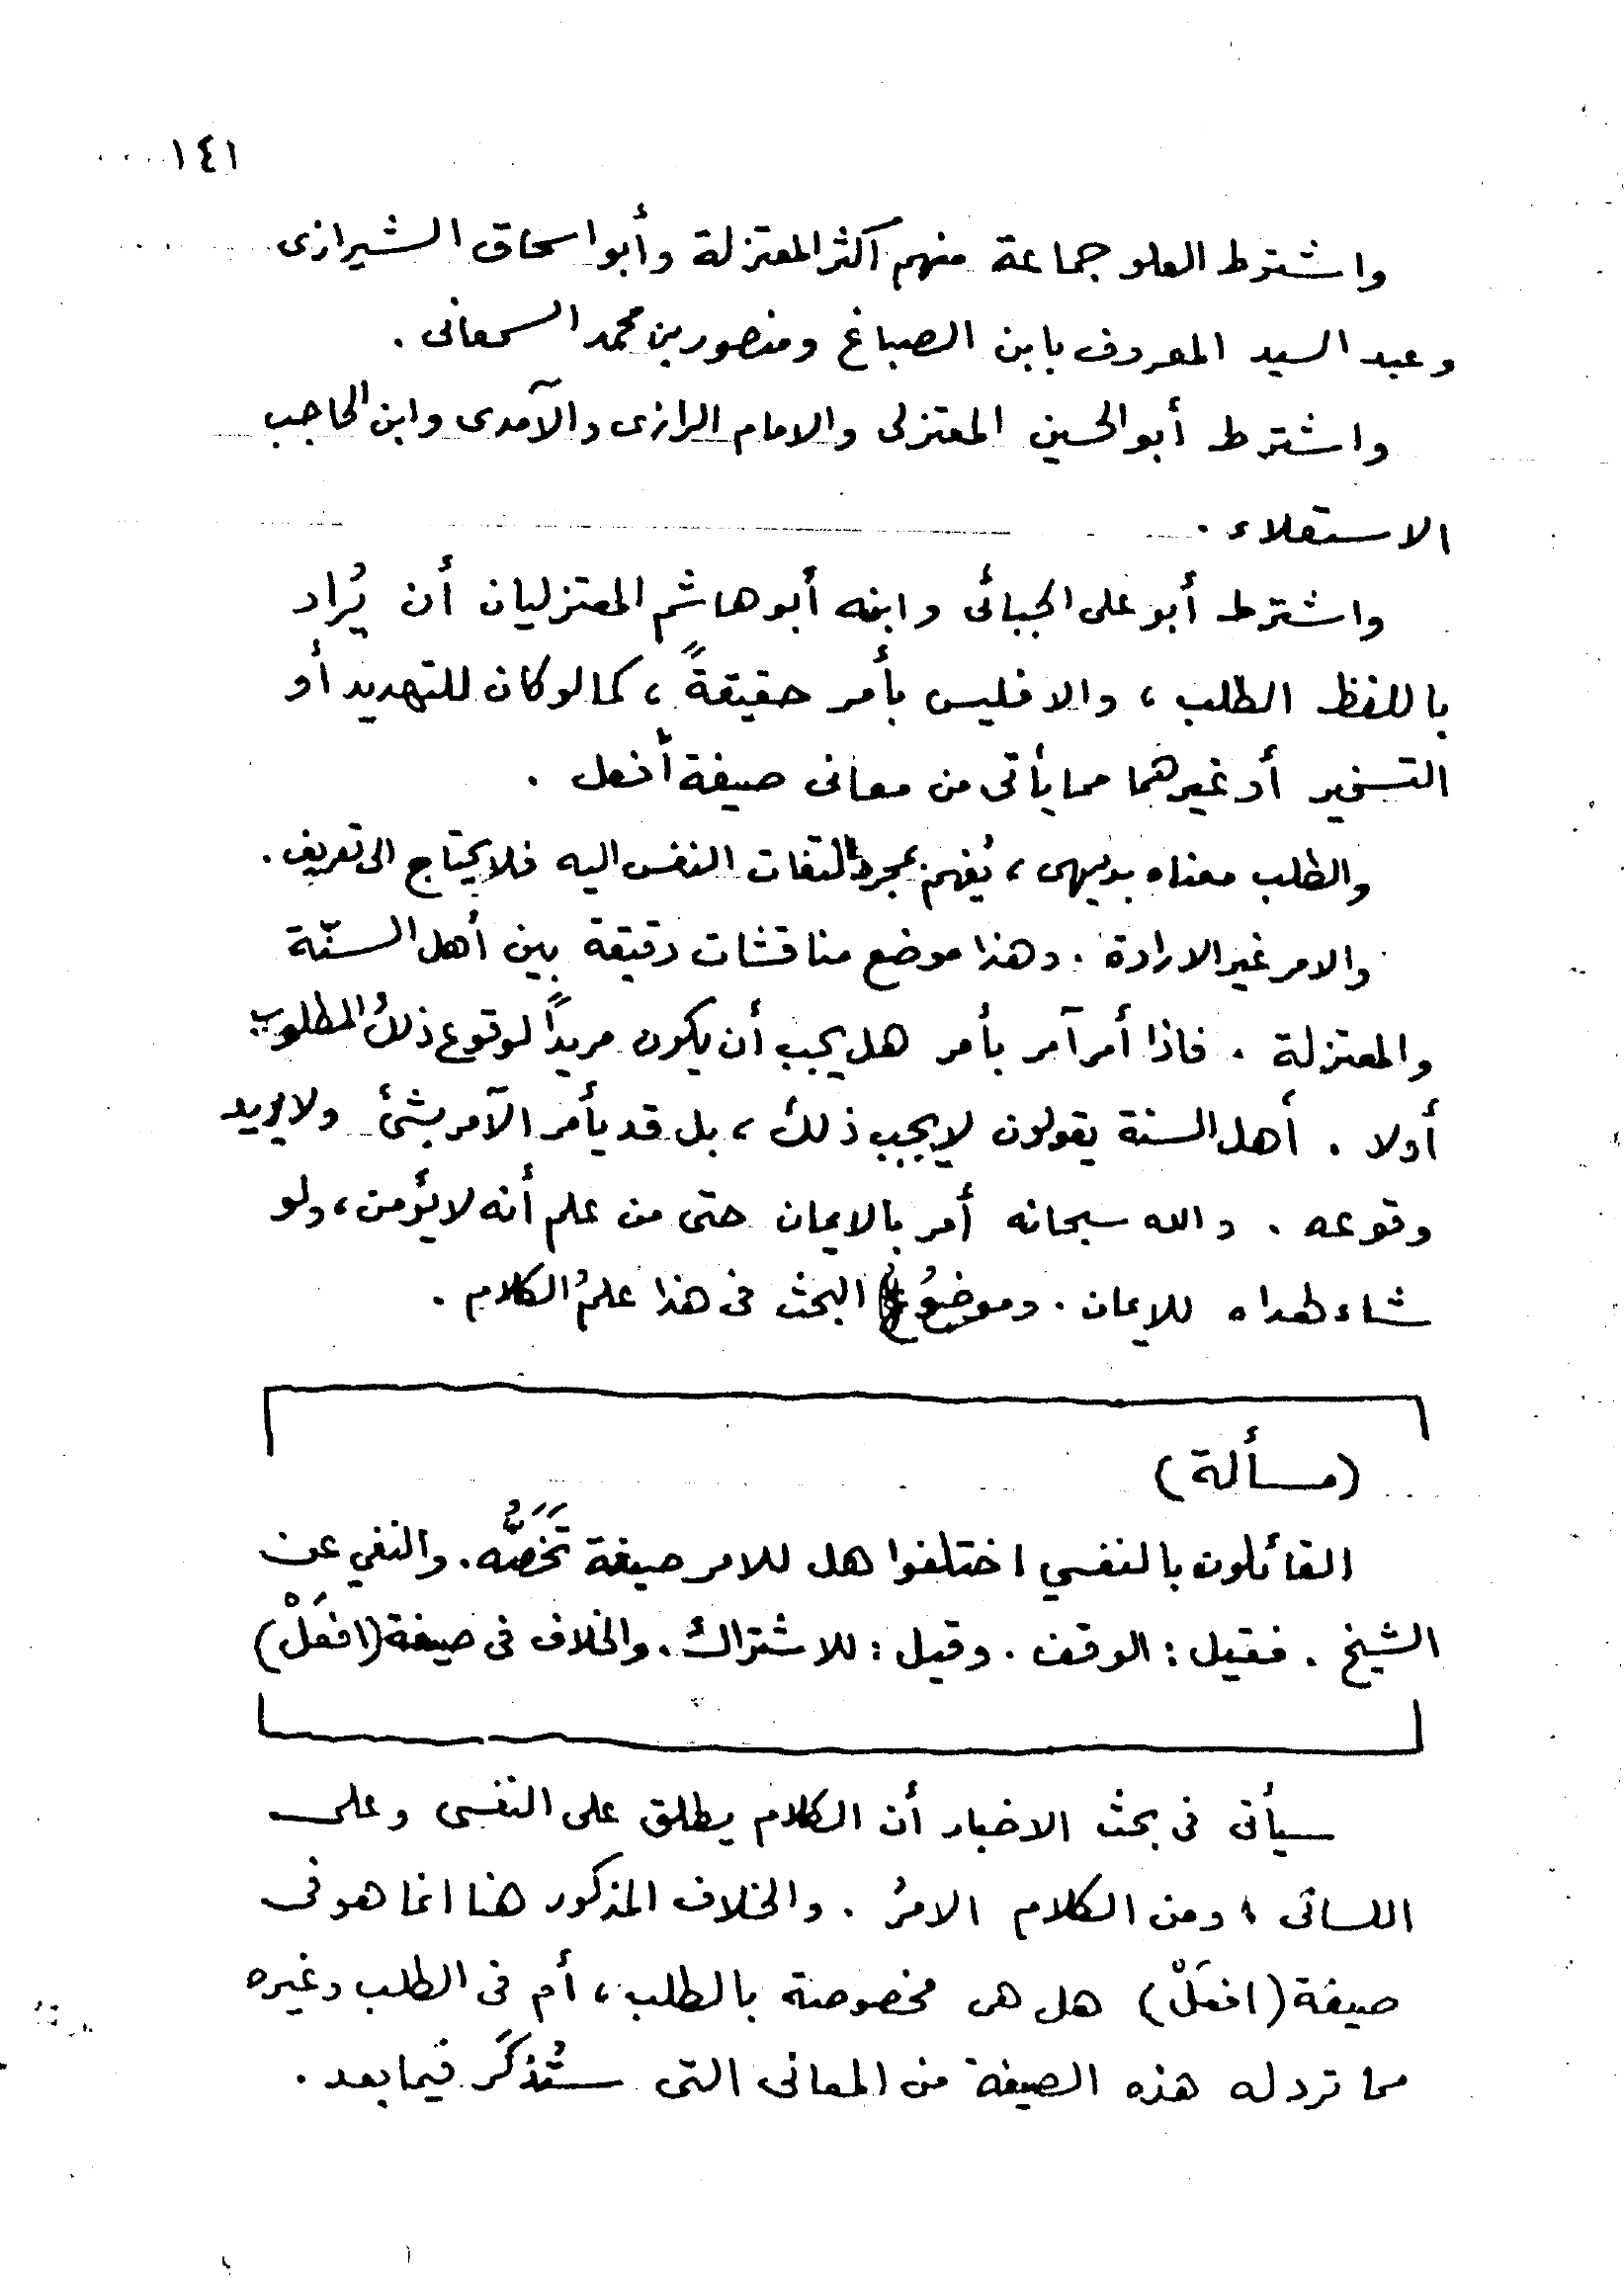 ١٤١
واشترط العلو جماعة منهم أكثر المعتزلة وأبو اسحاق الشيرازى
وعبد السيد المعروف بابن الصباغ ومنصور بن محمد السمعانى .
واشترط أبو الحسين المعتزلى والامام الرازى والآمدى وابن الحاجب
الاستعلاء .
واشترط أبو على الجبائى وابنه أبو هاشم المعتزليان أن يُراد
باللفظ الطلب ، والا فليس بأمر حقيقةً ، كما لو كان للتهديد أو
التسخير أو غيرهما مما يأتى من معانى صيغة أفعل .
والطلب معناه بديهى ، يُفهم بمجرد التفات النفس اليه فلا يحتاج الى تعريف .
والامر غير الارادة . وهذا موضع مناقشات دقيقة بين أهل السنّة
والمعتزلة . فاذا أمر آمر بأمر هل يجب أن يكون مريداً لوقوع ذلك المطلوب
أو لا . أهل السنة يقولون لا يجب ذلك ، بل قد يأمر الآمر بشئ ولا يريد
وقوعه . والله سبحانه أمر بالايمان حتى من علم أنه لا يؤمن ، ولو
شاء لهداه للايمان . وموضعُ البحث فى هذا علمُ الكلام .
(مسألة)
القائلون بالنفسي اختلفوا هل للامر صيغة تَخُصُّه . والنفي عن
الشيخ . فقيل : الوقف . وقيل : للاشتراك . والخلاف فى صيغة (افعَلْ)
سيأتى فى بحث الاخبار أن الكلام يطلق على النفسى وعلى
اللسانى ، ومن الكلام الامرُ . والخلاف المذكور هنا انما هو فى
صيغة (افعَلْ) هل هى مخصوصة بالطلب ، أم فى الطلب وغيره
مما ترد له هذه الصيغة من المعانى التى ستُذكَر فيما بعد .